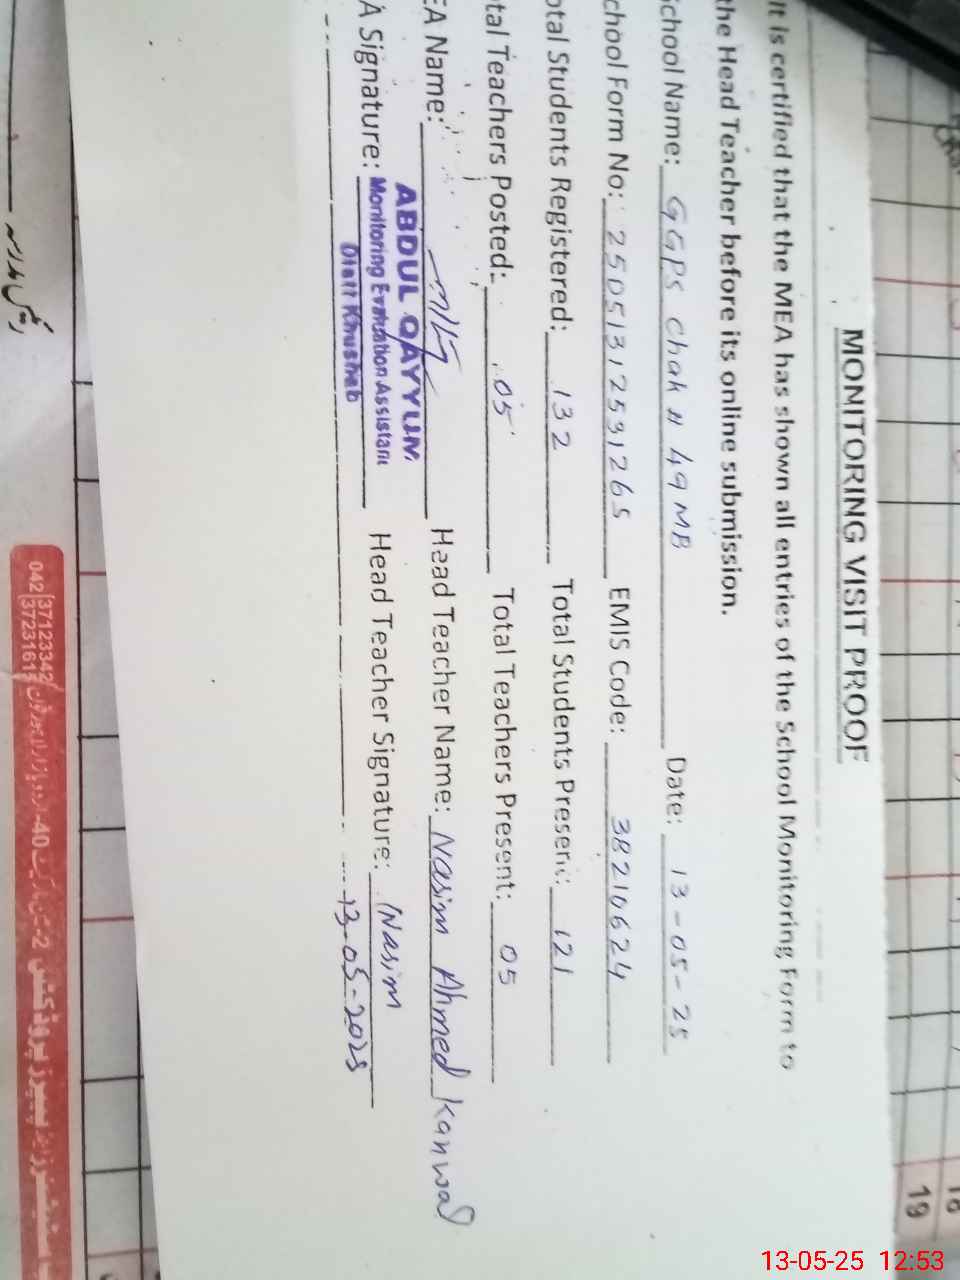 MONITORING VISIT PROOF
It is certified that the MEA has shown all entries of the School Monitoring Form to
the Head Teacher before its online submission.
School Name: GGPS Chak # 49 MB Date: 13-05-25
chool Form No: 25051312531265 EMIS Code: 38210624
otal Students Registered: 132 Total Students Present: 121
tal Teachers Posted: 05 Total Teachers Present: 05
EA Name: Head Teacher Name: Nasim Ahmed Kanwal
A Signature: Head Teacher Signature: Nasim
13-05-2025
ABDUL QAYYUM
Monitoring Evaluation Assistant
Distt Khushab
042 37123342
3723161
18
19
13-05-25 12:53